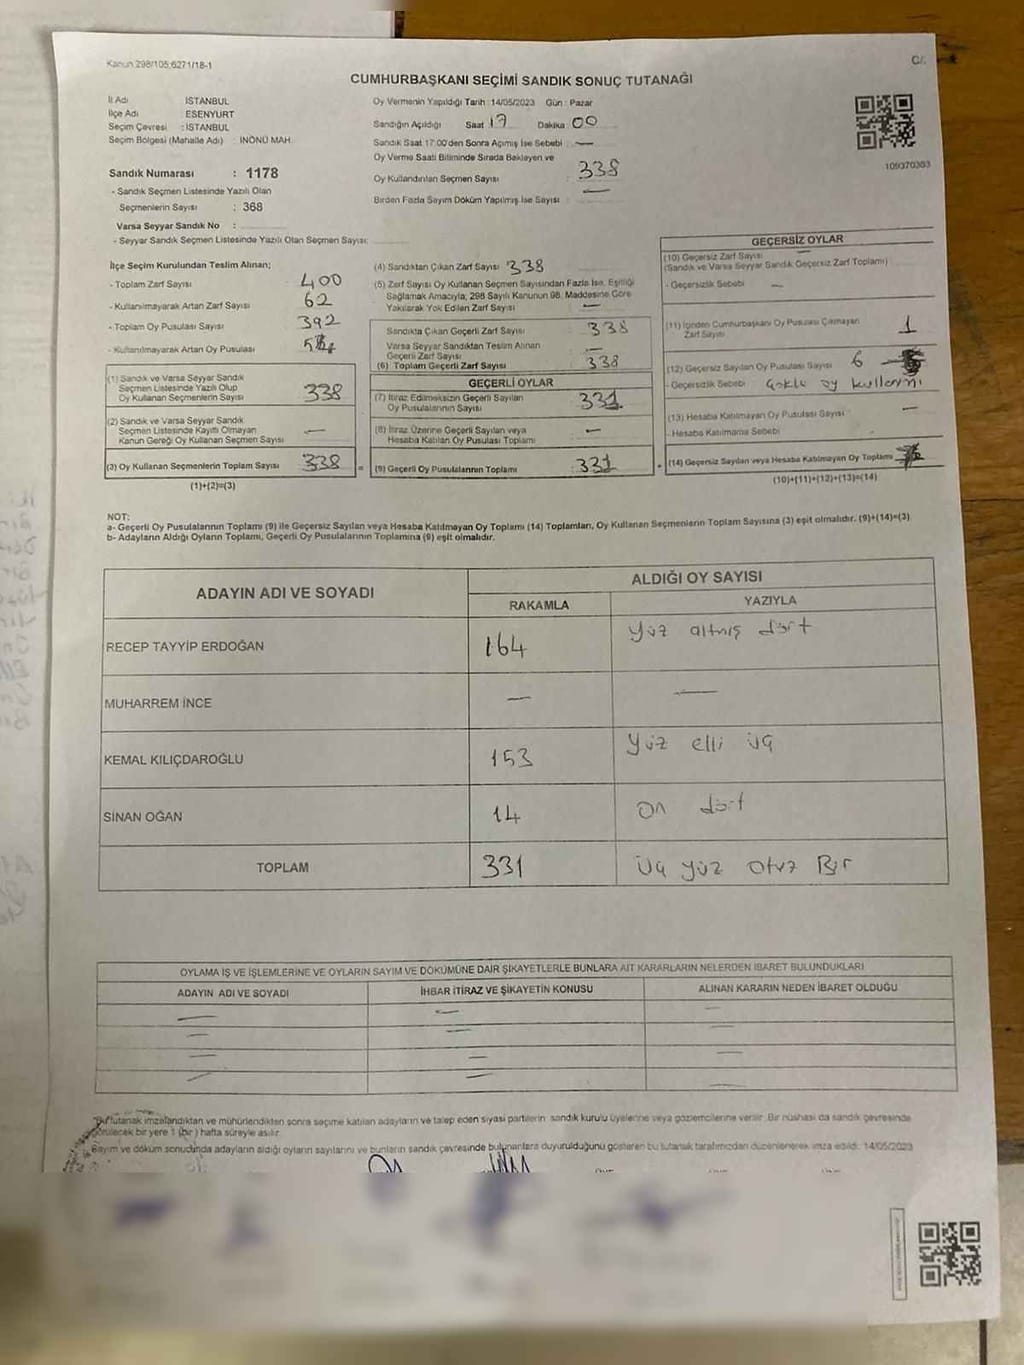 Kanun 298/105;6271/18-1
C/.
CUMHURBAŞKANI SEÇİMİ SANDIK SONUÇ TUTANAĞI
İl Adı İSTANBUL
İlçe Adı ESENYURT
Seçim Çevresi : İSTANBUL
Seçim Bölgesi (Mahalle Adı) : İNÖNÜ MAH
Sandık Numarası : 1178
- Sandık Seçmen Listesinde Yazılı Olan
Seçmenlerin Sayısı : 368
Varsa Seyyar Sandık No :
- Seyyar Sandık Seçmen Listesinde Yazılı Olan Seçmen Sayısı:
Oy Vermenin Yapıldığı Tarih : 14/05/2023 Gün : Pazar
Sandığın Açıldığı Saat 17 Dakika : 00
Sandık Saat 17:00'den Sonra Açılmış İse Sebebi : —
Oy Verme Saati Bitiminde Sırada Bekleyen ve
Oy Kullandırılan Seçmen Sayısı : 338
Birden Fazla Sayım Döküm Yapılmış İse Sayısı : —
109370363
İlçe Seçim Kurulundan Teslim Alınan;
- Toplam Zarf Sayısı : 400
- Kullanılmayarak Artan Zarf Sayısı : 62
- Toplam Oy Pusulası Sayısı : 392
- Kullanılmayarak Artan Oy Pusulası
(1) Sandık ve Varsa Seyyar Sandık
Seçmen Listesinde Yazılı Olup
Oy Kullanan Seçmenlerin Sayısı : 338
(2) Sandık ve Varsa Seyyar Sandık
Seçmen Listesinde Kayıtlı Olmayan
Kanun Gereği Oy Kullanan Seçmen Sayısı : —
(3) Oy Kullanan Seçmenlerin Toplam Sayısı : 338
(1)+(2)=(3)
(4) Sandıktan Çıkan Zarf Sayısı : 338
(5) Zarf Sayısı Oy Kullanan Seçmen Sayısından Fazla İse, Eşitliği
Sağlamak Amacıyla, 298 Sayılı Kanunun 98. Maddesine Göre
Yakılarak Yok Edilen Zarf Sayısı : —
Sandıkta Çıkan Geçerli Zarf Sayısı : 338
Varsa Seyyar Sandıktan Teslim Alınan
Geçerli Zarf Sayısı : —
(6) Toplam Geçerli Zarf Sayısı : 338
GEÇERLİ OYLAR
(7) İtiraz Edilmeksizin Geçerli Sayılan
Oy Pusulalarının Sayısı : 331
(8) İtiraz Üzerine Geçerli Sayılan veya
Hesaba Katılan Oy Pusulası Toplamı : —
= (9) Geçerli Oy Pusulalarının Toplamı : 331
GEÇERSİZ OYLAR
(10) Geçersiz Zarf Sayısı : —
(Sandık ve Varsa Seyyar Sandık Geçersiz Zarf Toplamı)
- Geçersizlik Sebebi : —
(11) İçinden Cumhurbaşkanı Oy Pusulası Çıkmayan
Zarf Sayısı : 1
(12) Geçersiz Sayılan Oy Pusulası Sayısı : 6
- Geçersizlik Sebebi : Çoklu oy kullanımı
(13) Hesaba Katılmayan Oy Pusulası Sayısı : —
- Hesaba Katılmama Sebebi :
+ (14) Geçersiz Sayılan veya Hesaba Katılmayan Oy Toplamı :
(10)+(11)+(12)+(13)=(14)
NOT:
a- Geçerli Oy Pusulalarının Toplamı (9) ile Geçersiz Sayılan veya Hesaba Katılmayan Oy Toplamı (14) Toplamları, Oy Kullanan Seçmenlerin Toplam Sayısına (3) eşit olmalıdır. (9)+(14)=(3)
b- Adayların Aldığı Oyların Toplamı, Geçerli Oy Pusulalarının Toplamına (9) eşit olmalıdır.
ADAYIN ADI VE SOYADI ALDIĞI OY SAYISI
RAKAMLA YAZIYLA
RECEP TAYYİP ERDOĞAN 164 Yüz altmış dört
MUHARREM İNCE — —
KEMAL KILIÇDAROĞLU 153 Yüz elli üç
SİNAN OĞAN 14 On dört
TOPLAM 331 Üç yüz Otuz Bir
OYLAMA İŞ VE İŞLEMLERİNE VE OYLARIN SAYIM VE DÖKÜMÜNE DAİR ŞİKAYETLERLE BUNLARA AİT KARARLARIN NELERDEN İBARET BULUNDUKLARI
ADAYIN ADI VE SOYADI İHBAR İTİRAZ VE ŞİKAYETİN KONUSU ALINAN KARARIN NEDEN İBARET OLDUĞU
— — —
— — —
— — —
— — —
Bu tutanak imzalandıktan ve mühürlendikten sonra seçime katılan adayların ve talep eden siyasi partilerin sandık kurulu üyelerine veya gözlemcilerine verilir. Bir nüshası da sandık çevresinde
görülecek bir yere 1 (bir) hafta süreyle asılır.
Sayım ve döküm sonucunda adayların aldığı oyların sayılarını ve bunların sandık çevresinde bulunanlara duyurulduğunu gösteren bu tutanak tarafımızdan düzenlenerek imza edildi. 14/05/2023